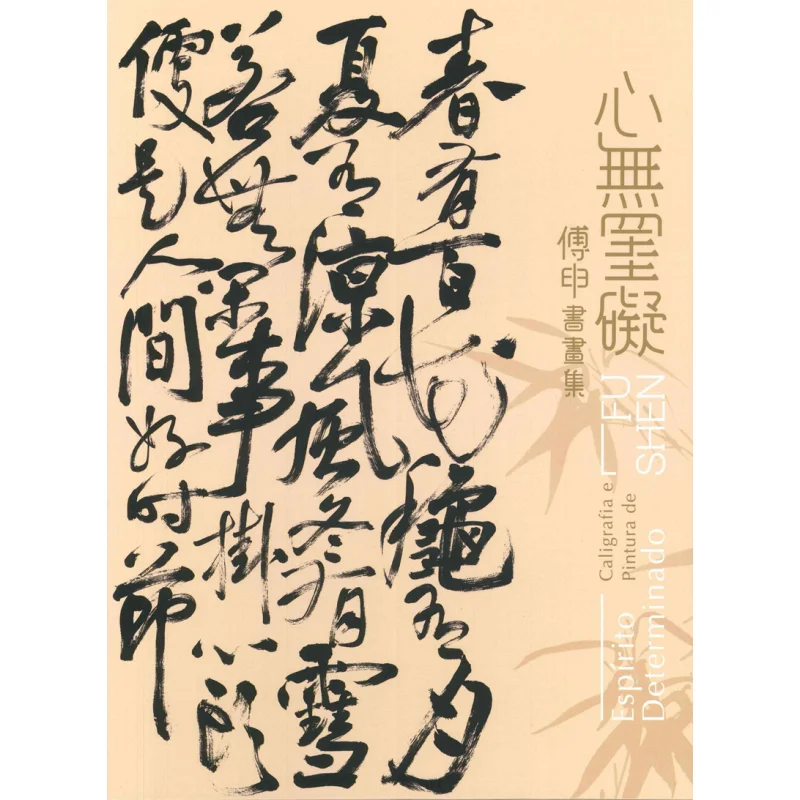 心無罣礙
傅申書畫集
Espírito
Determinado
Caligrafia e
Pintura de
FU
SHEN
春有百花龝有月
夏有涼風冬有雪
若無閑事掛心頭
便是人間好时節